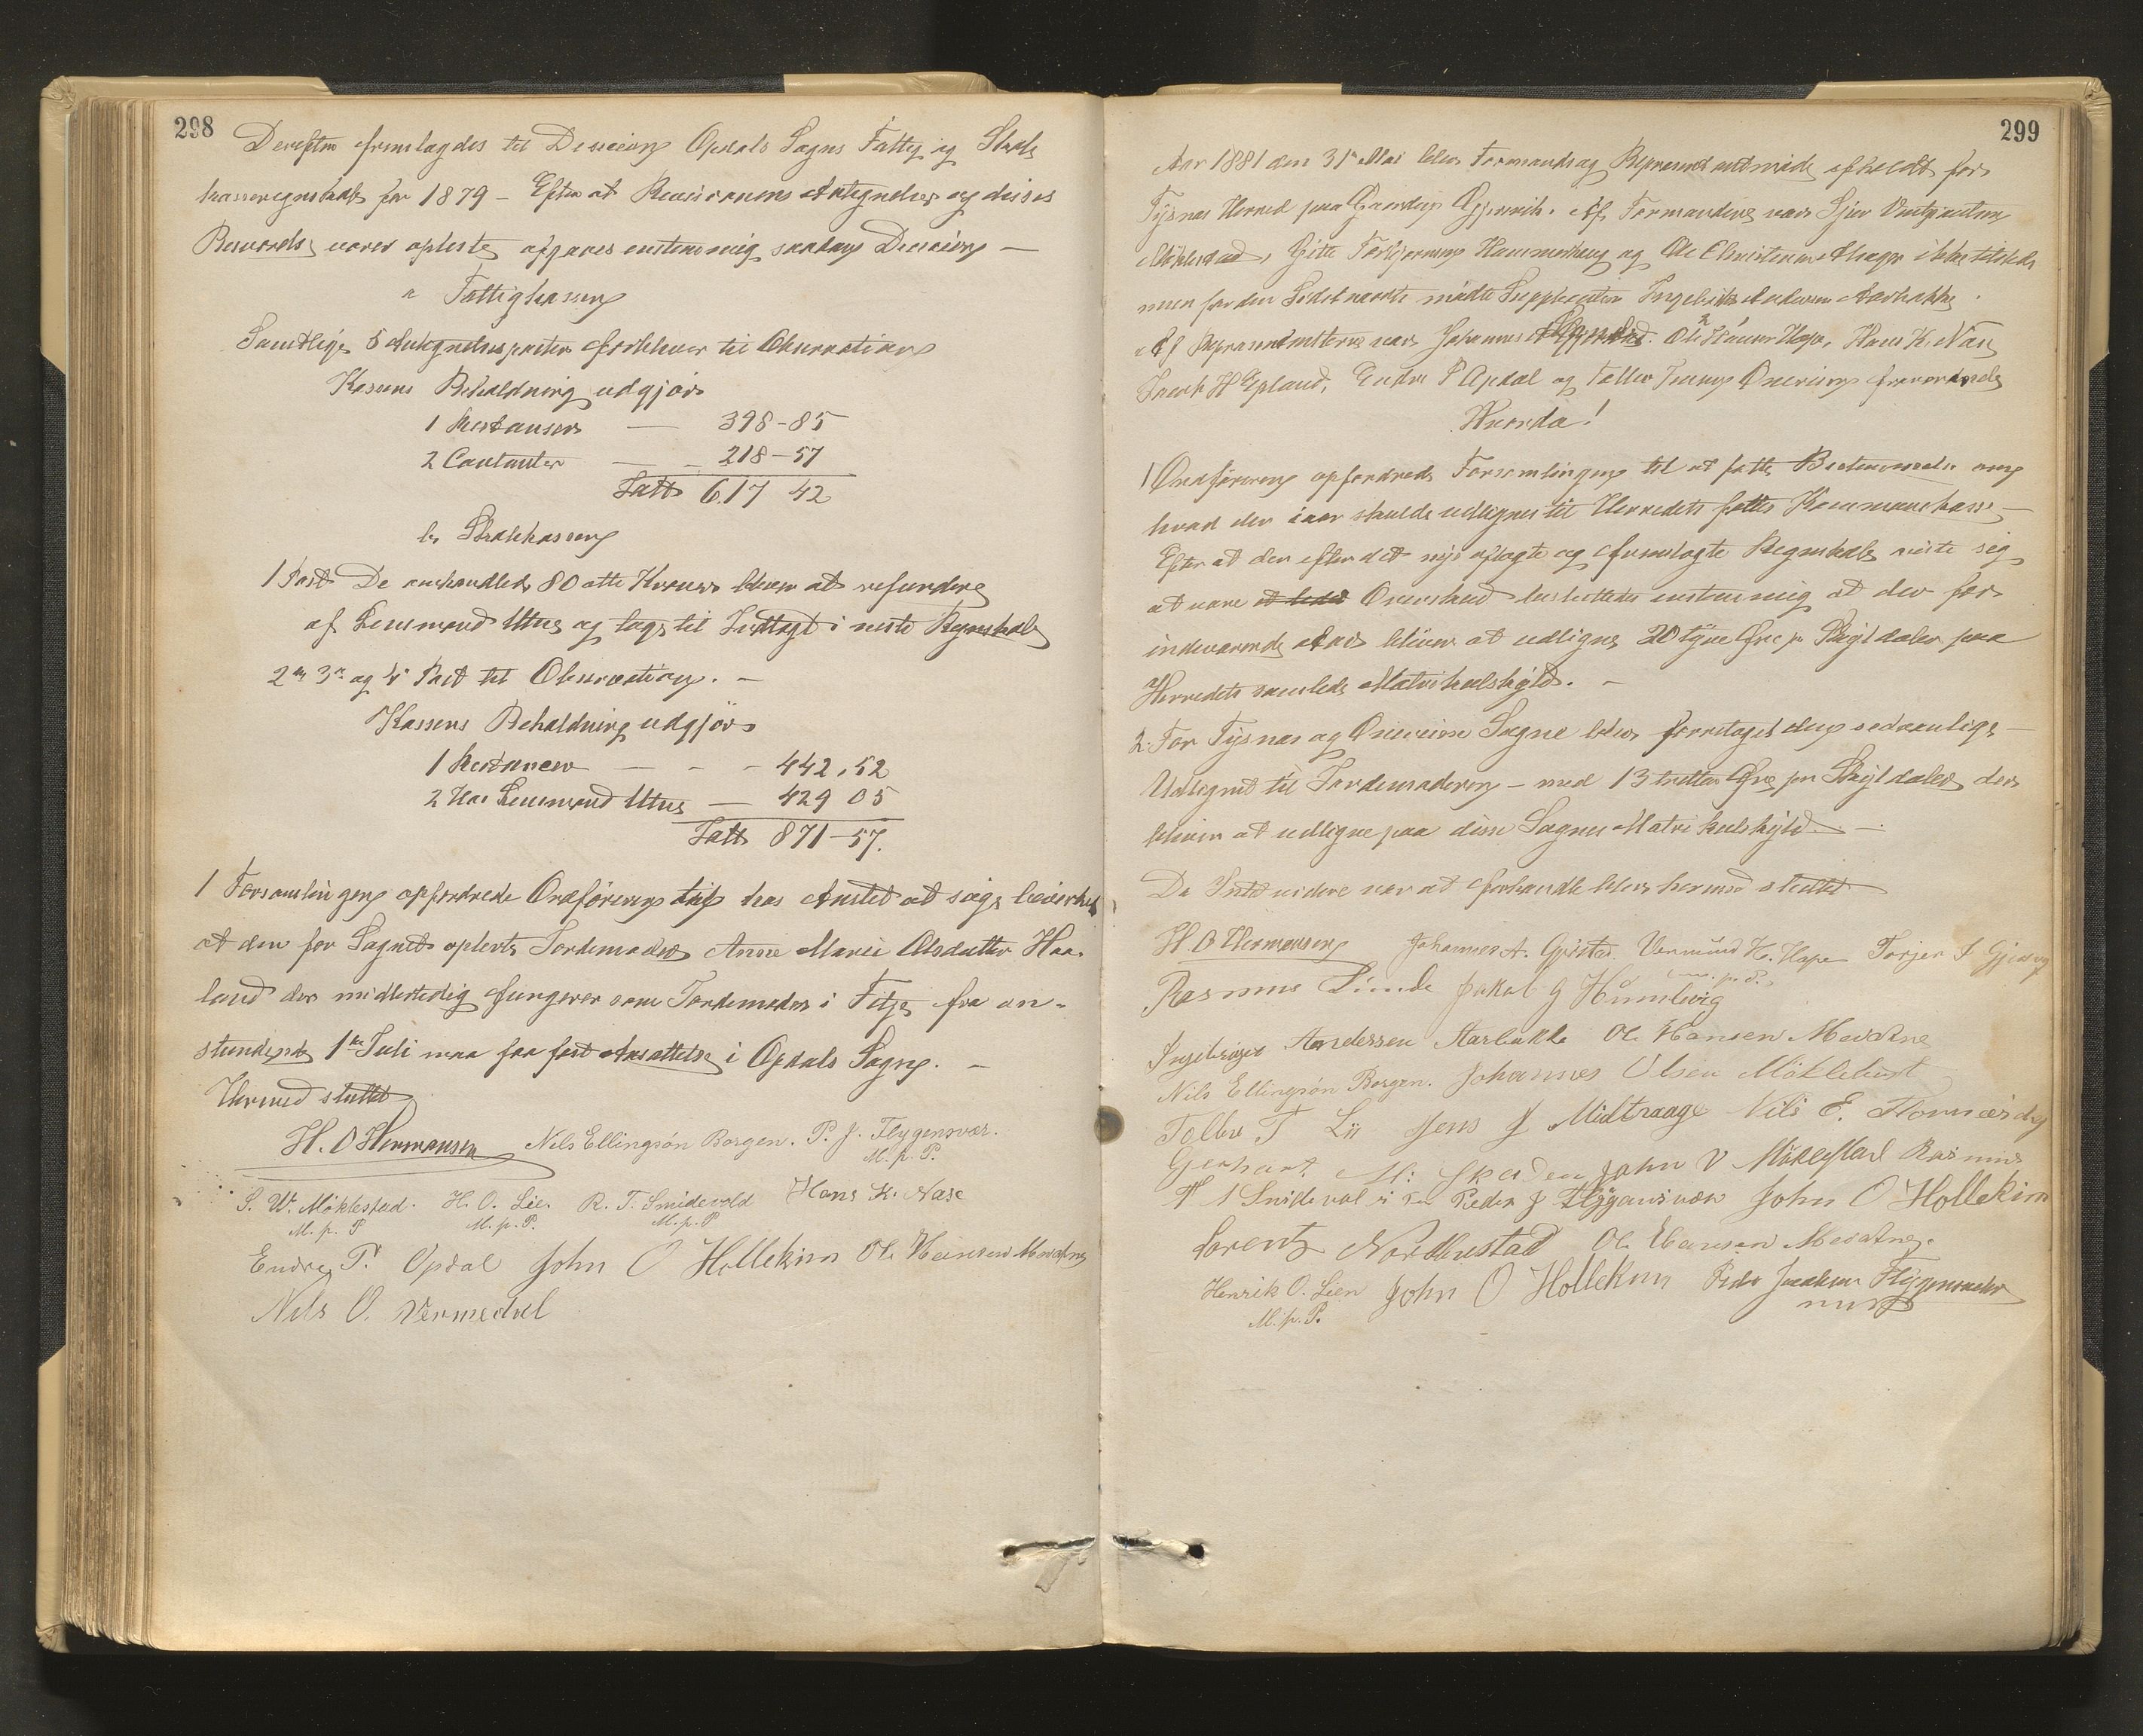 298
Derefter fremlagdes til Decision Opdals Sogns Fattig og Skole
kasseregnskab for 1879 – Efter at Revisionens Antegnelser og disses
Besvarelse varer opleste afgaves enstemmig saadan Decision –
a Fattigkassen
Samtlige 5 Antegnelsesposter forbliver til Observation
Kassens Beholdning udgjør
1 Restanser — 398-85
2 Contanter — — 218-57
Talts 617 42
b, Skolekassen
1 Post De omhandlede 80 otte Kroner bliver at refundere
af Lensmand Uttne og tages til Indtægt i neste Regnskab
2den 3die og 4de Post til Observation. –
Kassens Beholdning udgjör
1 Restancer — – – 442,52
2 Hos Lensmand Uttne — 429 05
Talts 871-57.
1 Forsamlingen opfordrede Ordføreren til hos Amtet at søge bevirket
at den for Sognet oplerte Jordemoder Anne Marie Olsdatter Haa-
land der midlertidig fungerer som Jordemoder i Fitje fra an-
stundende 1ste Juli maa faa fast Ansættelse i Opdals Sogn. –
Hermed sluttet
H. O Hermansen Nils Ellingsön Borgen. P. J. Flygensvær.
M. p. P.
S. W. Möklestad. H. O. Lie. R. T. Smidevold Hans K. Nase
M. p. P M. p. P. M. p. P
Endre P. Opdal John O Hollekim Ole Hansen Mevatne
Nils O. Vermedal
299
Aar 1881 den 31te Mai blev Formands og Representantmøde afholdt for
Tysnes Herred paa Gaarden Gjersvik. Af Formændene var Sjur Vintjentsen
Möklestad, Gitle Torbjørnsen Hammerhaug og Ole Christensen Drage ikke tilstede
men for den Sidstnævnte mødte Suppleanten Ingebrikt Andersen Aarbakke.
Af Representanterne var Johannes Ole Hansen Hope, Hans K. Næse
H Epland, Endre P Opdal og Tollev fraværende
Hvorda!
1 Ordføreren opfordrede Forsamlingen til at fatte Bestemmelse om
hvad der iaar skulde udlignes til Herredets felles Kommunekasse –
Efter at der efter det nys aflagte og fremlagte Regnskab viste sig
at være Overskud besluttedes enstemmig at der for
indeværende Aar bliver at udligne 20 tyve Øre pr Skyldaler paa
Herredets samlede Matrikulskyld. –
2. For Tysnes og Onereim Sogne blev foretaget den sedvanlige –
Udligning til Jordemoderen – med 13 tretten Øre pr Skyldaler der
bliver at udligne paa disse Sognes Matrikulskyld –.
Da Intet videre var at forhandle blev hermed sluttet
H. O Hermansen Johannes A. Gjerstad. Vermund H. Hope Torjer S Gjersvig
m. p. P.
Rasmus Linde Jakob J Humlevig
Ingebrigt Andersen Aarbakke Ole Hansen Mevatne
Nils Ellingsön Borgen. Johannes Olsen Möklebust
Tollev T Lie Jens J Midtraage Nils E.
Gerhart M: Skaden John V Möklestad Rasmus
T Smidevol Peder J Flygansvær John O Hollekim
Lorentz Nordhustad Ole Hansen Mevatne.
Henrik O. Lien John O Hollekim Peder Jacobsen Flygensvær
M. p. P. m p P